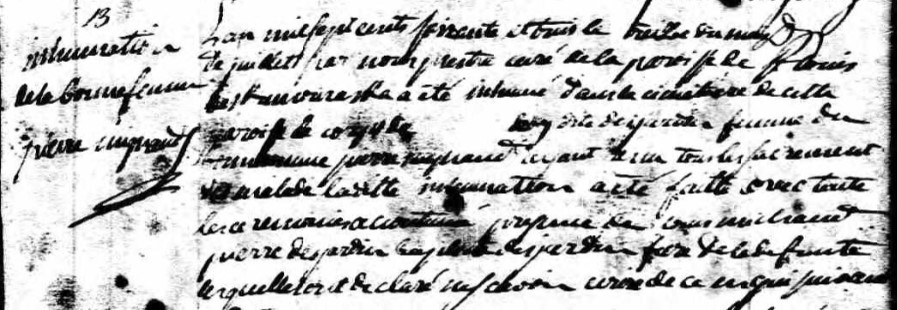 13
inhumation
de la bonne femme
pierre mignaud
L'an mil sept cents soixante et trois le treise du mois
de juillet par nous prestre curé de la paroisse de St Louis
de Kamouraska a été inhumé dans le cimetiere de cette
paroisse le corps de dit desjardin femme du
nommé pierre mignaud ayant reçu tous les sacrement
de malade la ditte inhumation a été faitte avec toute
les ceremonies accoutumé presence de Louis michaud
pierre desjardin baptiste desjardin frere de la defunte
lesquelles ont declaré ne sçavoir ecrire de ce enquis suivant